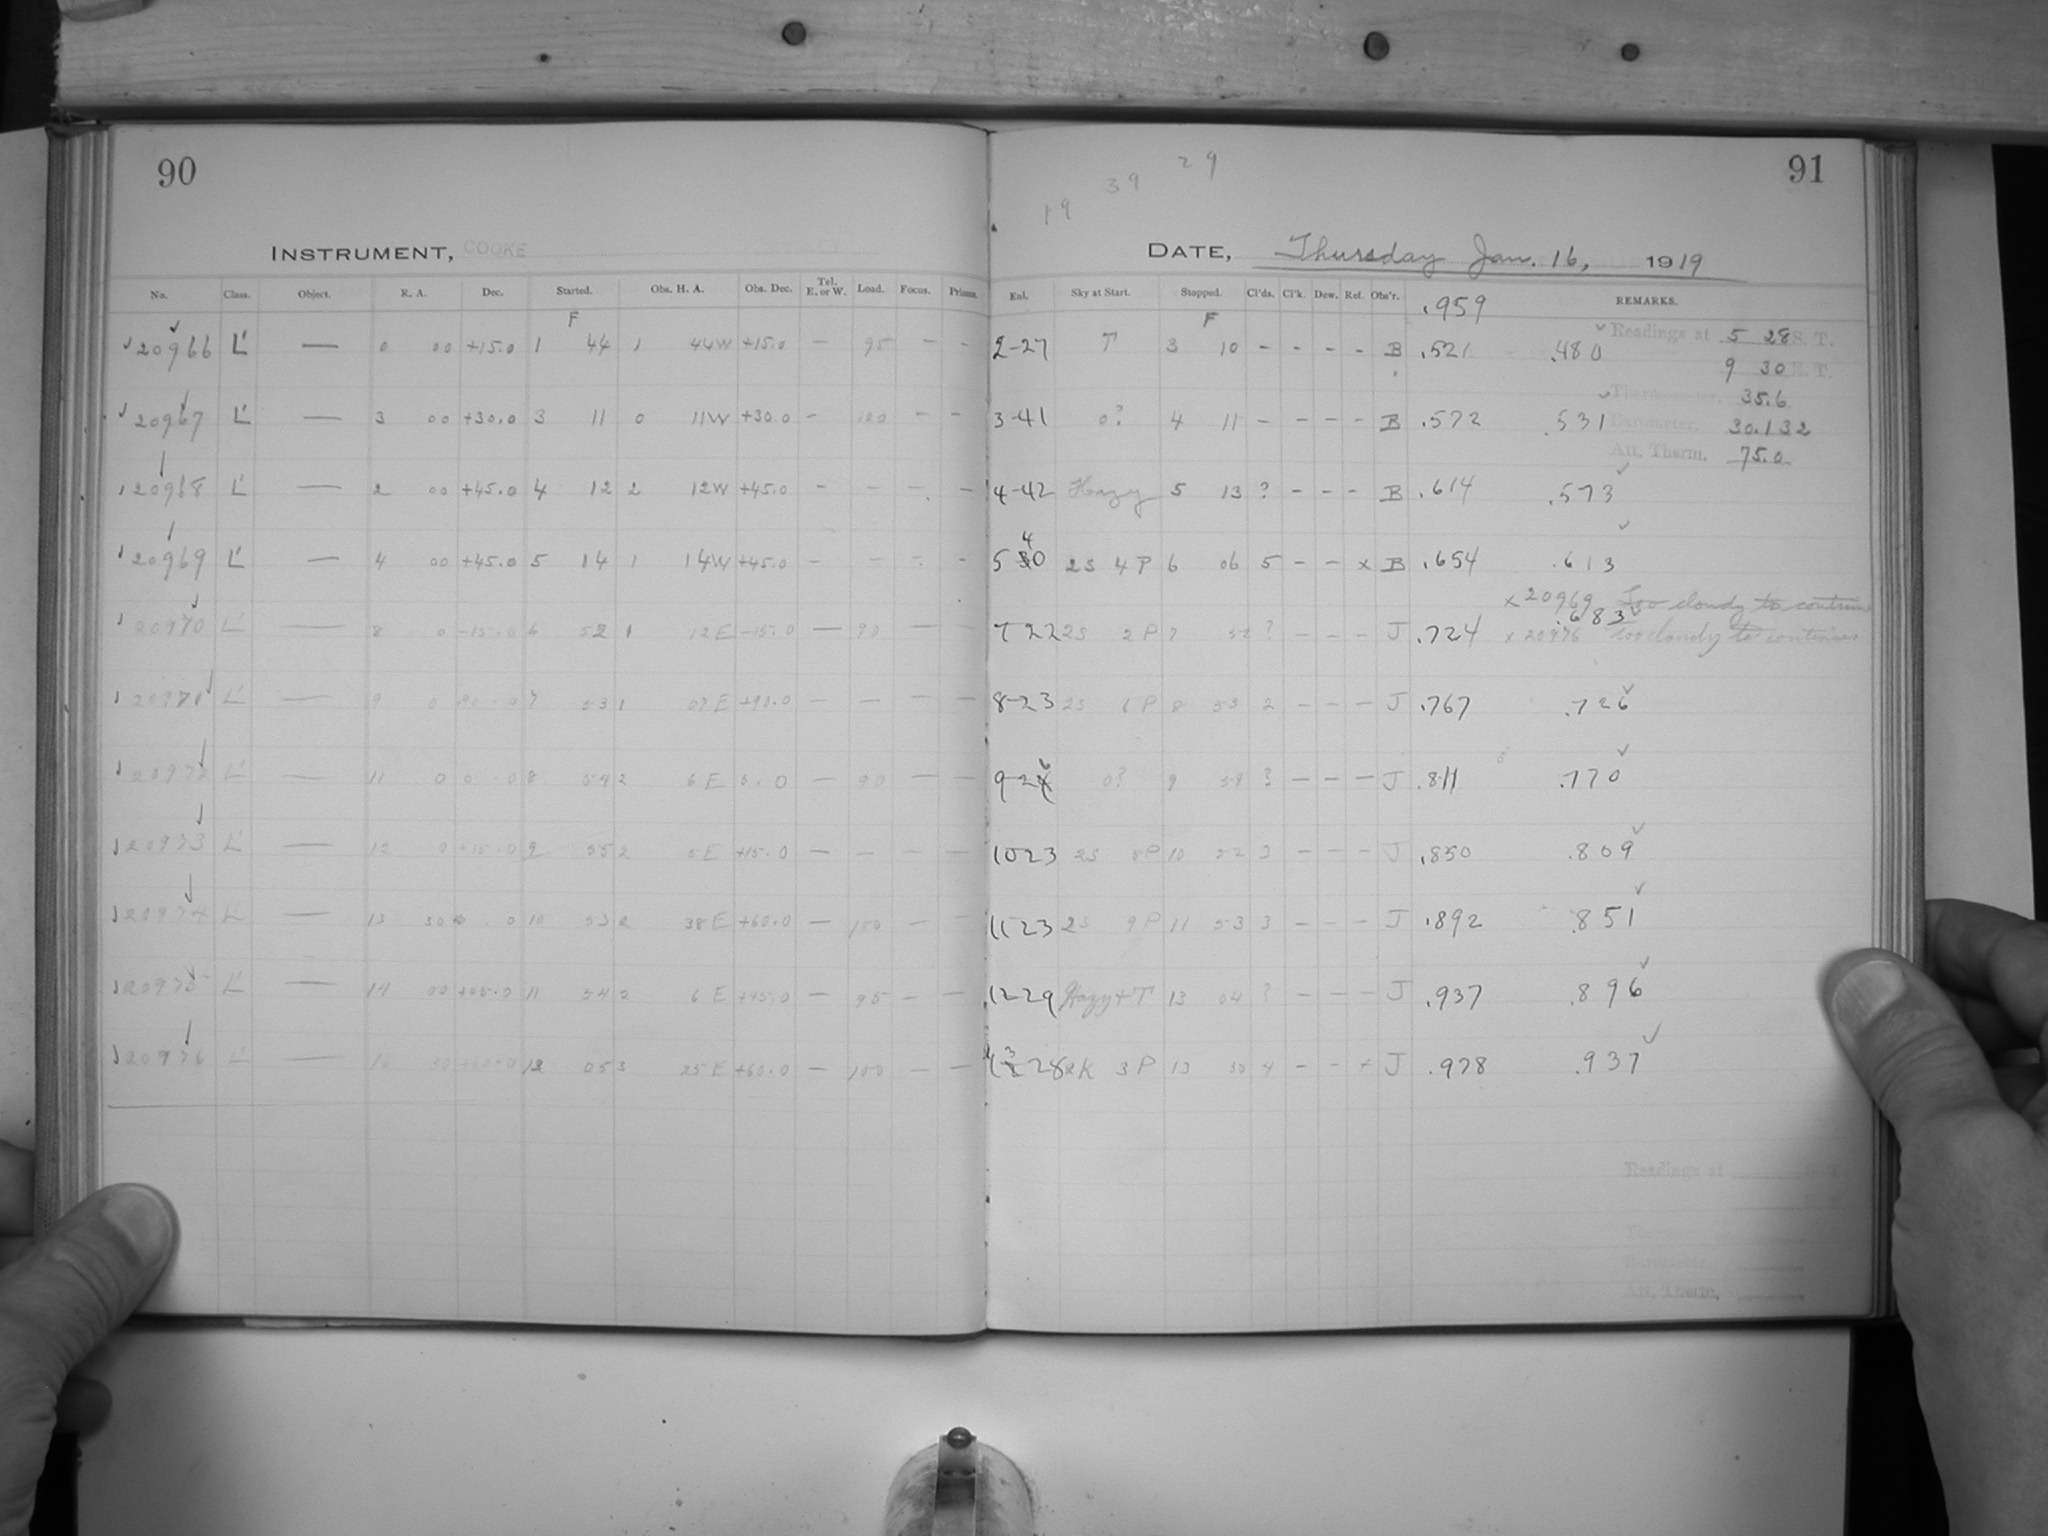 90
INSTRUMENT, COOKE
No. Class. Object. R. A. Dec. Started. Obs. H. A. Obs. Dec. Tel. E. or W. Load. Focus. Prisms.
F
20966 L' — 0 00 +15.0 1 44 1 44W +15.0 — 95 — -
20967 L' — 3 00 +30.0 3 11 0 11W +30.0 - 100 - -
20968 L' — 2 00 +45.0 4 12 2 12W +45.0 - - - -
20969 L' — 4 00 +45.0 5 14 1 14W +45.0 - - - -
20970 L' — 8 0 -15.0 6 52 1 12E -15.0 — 90 — —
20971 L' — 9 0 7 53 1 07E +90.0 — — — —
20972 L' — 11 0 0 0 8 54 2 6E 0.0 — 90 — —
20973 L' — 12 0 +15.0 9 55 2 5E +15.0 — — — —
20974 L' — 13 30 0 10 53 2 38E +60.0 — 100 — —
20975 L' — 14 00 +45.0 11 54 2 6E +45.0 — 95 — —
20976 L' — 30 +60.0 12 05 3 25E +60.0 — 100 — —
91
29
39
19
DATE, Thursday Jan. 16, 1919
Exl. Sky at Start. Stopped. Cl'ds. Cl'k. Dew. Ref. Obs'r. .959 REMARKS.
F
2-27 T 3 10 - - - - B .521 .480 Readings at 5 28 S. T.
9 30 E. T.
Thermometer. 35.6
3-41 0? 4 11 - - - - B .572 .531 Barometer. 30.132
Att. Therm. 75.0
4-42 Hazy 5 13 ? - - - B .614 .573
5 40 2S 4P 6 06 5 - - x B .654 .613
x 20969 Too cloudy to continue
7 22 2S 2P 7 52 ? - - - J .724 .683
x 20976 too cloudy to continue
8-23 2S 6P 8 53 2 - - - J .767 .726
9-26 0? 9 ? - - - J .811 .770
10 23 2S 5P 10 52 3 - - - J .850 .809
11 23 2S 9P 11 53 3 - - - J .892 .851
12-29 Hazy+T 13 04 ? - - - J .937 .896
13 28 2K 3P 13 30 4 - - + J .978 .937
Readings at
Barometer.
Att. Therm.